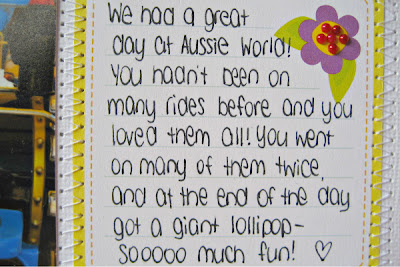 We had a great
day at Aussie World!
You hadn't been on
many rides before and you
loved them all! You went
on many of them twice,
and at the end of the day
got a giant lollipop-
sooooo much fun! ♡